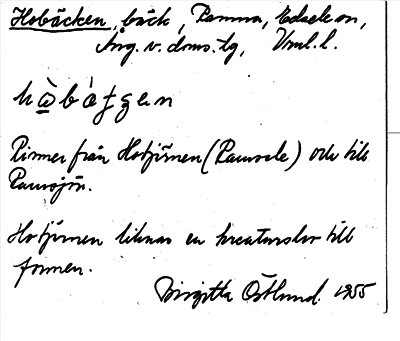 Hobäcken, bäck, Ramna, Edsele sn,
Ång. v. dms. tg, Vnl. l.
Rinner från Hotjärnen (Ramsele) och till
Ramsjön.
Hotjärnen liknar en kreaturslov till
formen.
Birgitta Östlund. 1955